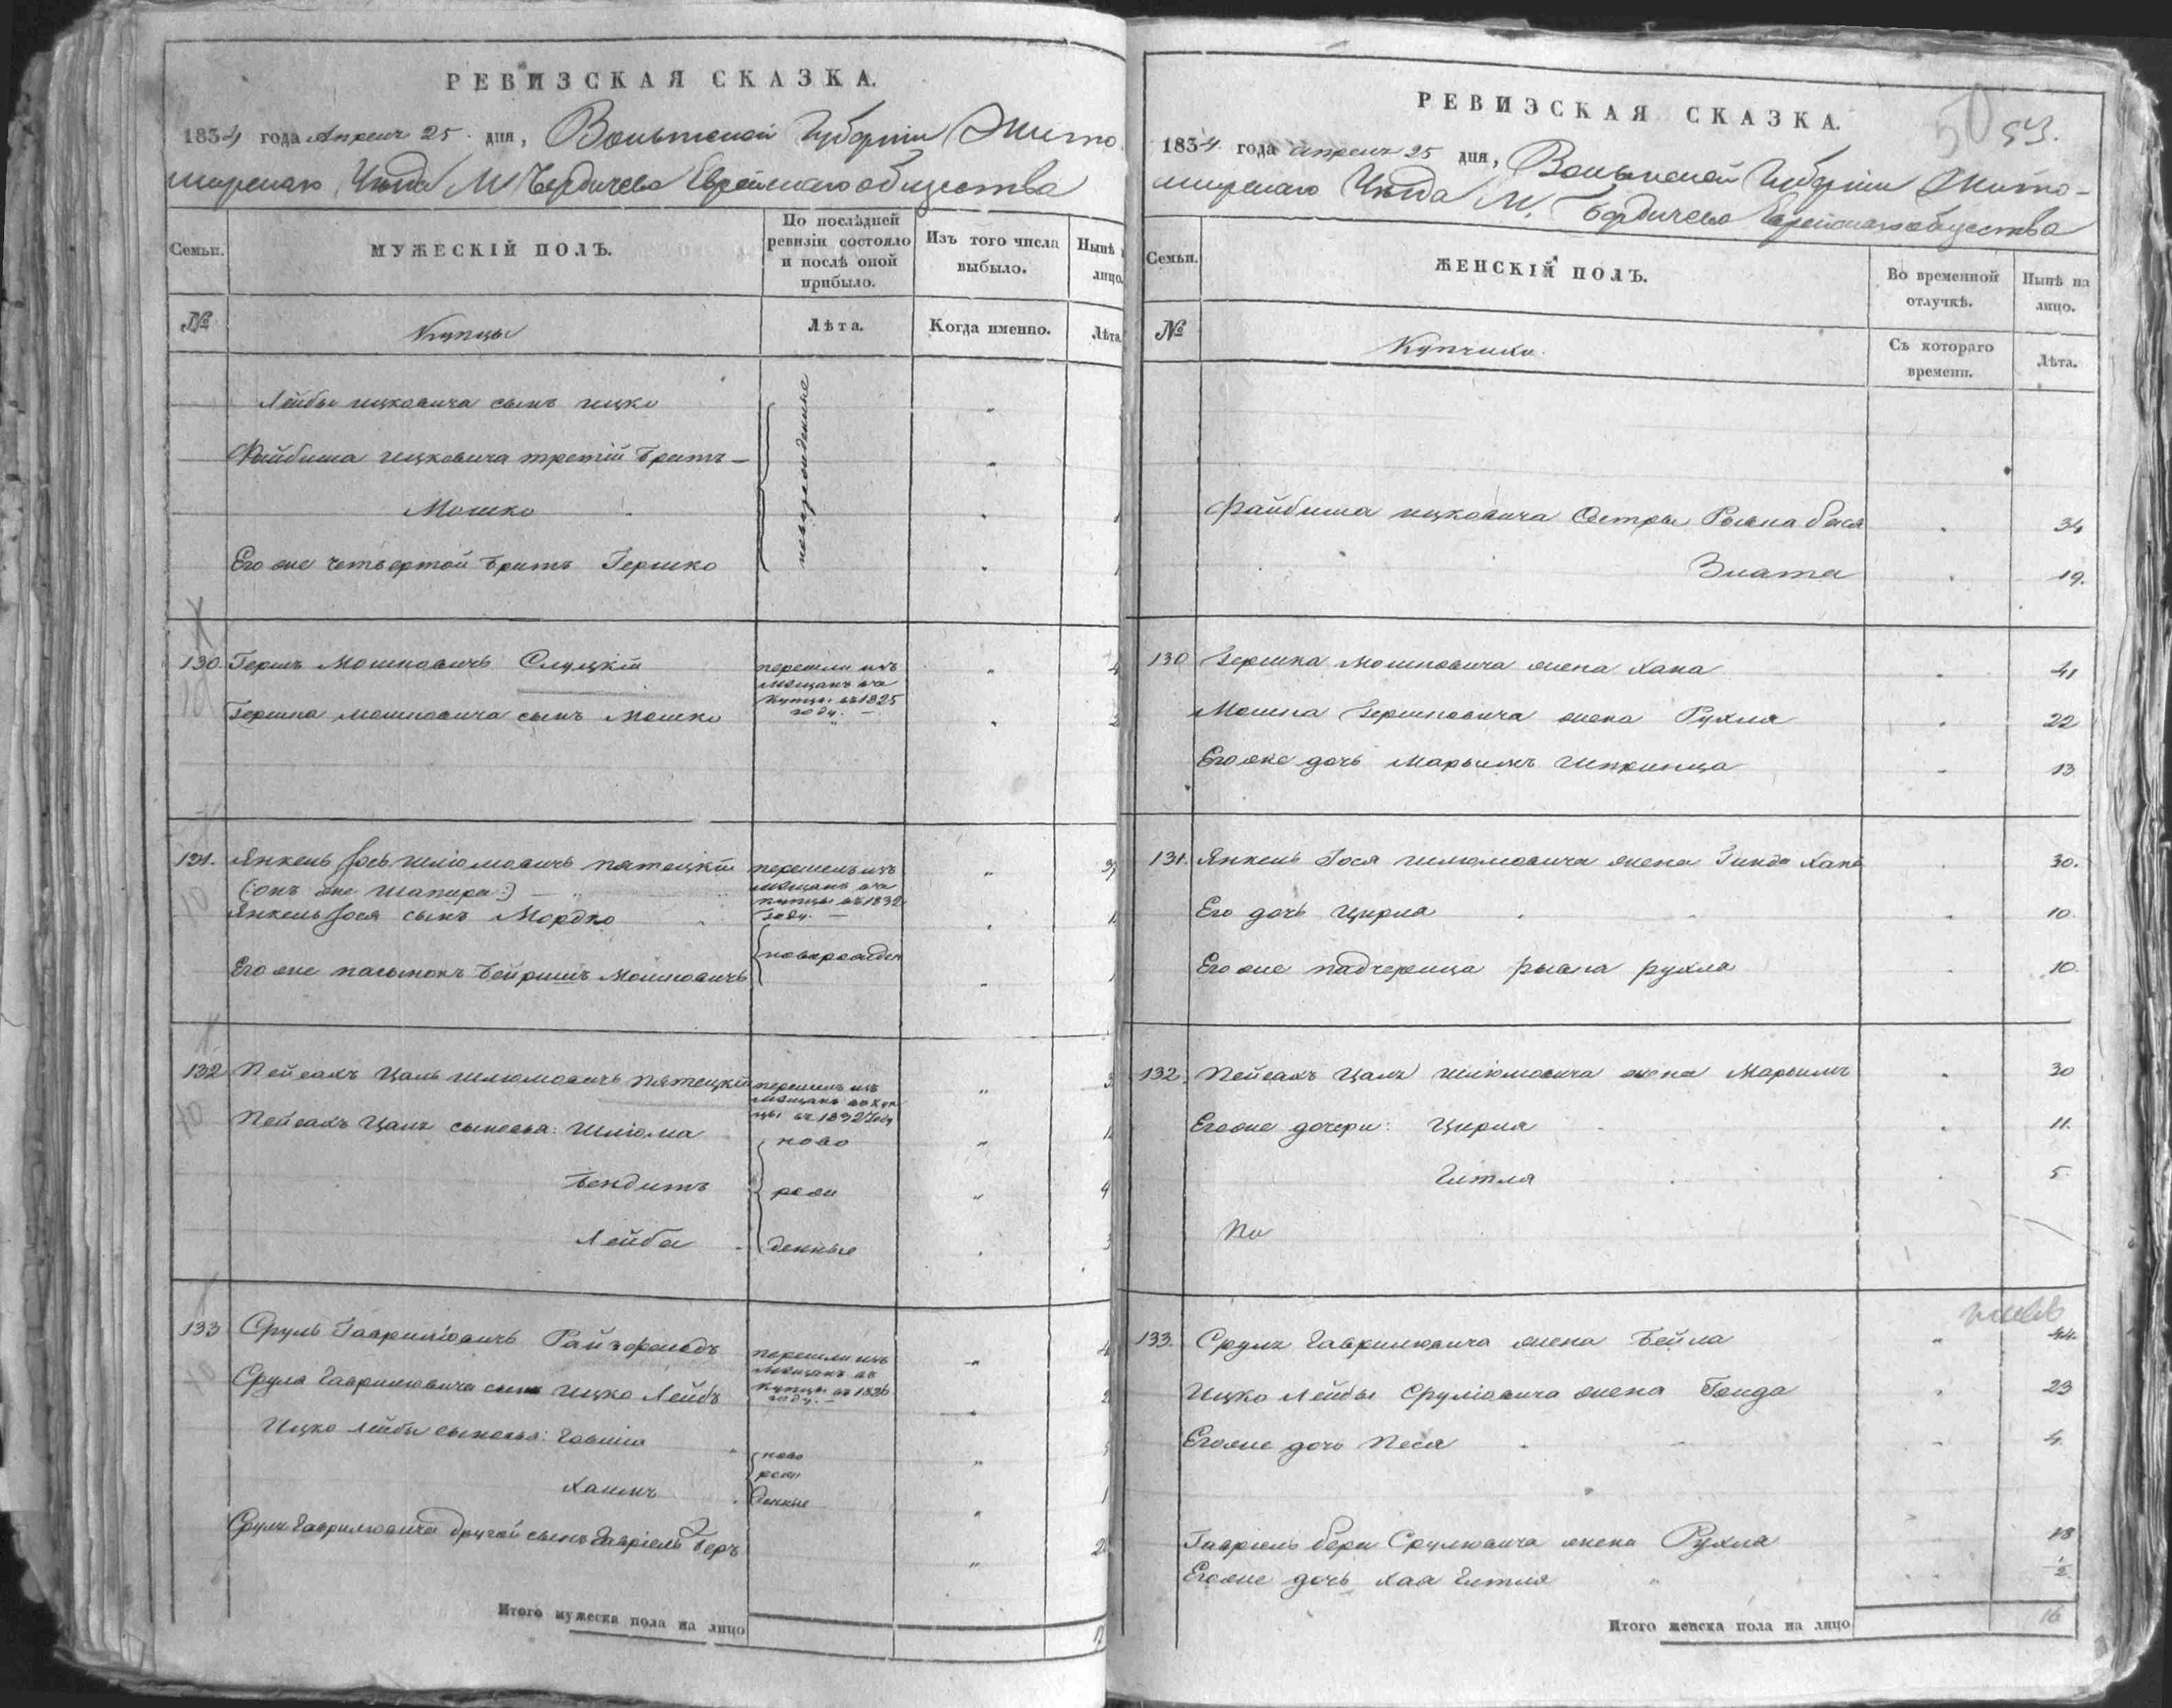 РЕВИЗСКАЯ СКАЗКА.
1834 года Апреля 25 дня, Волынской Губерніи Жито-
мирскаго Уезда М Бердичева Еврейскаго общества
Семьи.
МУЖЕСКІЙ ПОЛЪ.
По послѣдней
ревизіи состояло
и послѣ оной
прибыло.
Изъ того числа
выбыло.
Нынѣ
лицо.
№
Купцы
Лѣта.
Когда именно.
Лѣта.
Лейбы ицковича сынъ ицко
Файбиша ицковича третій братъ –
Мошко
Его же четвертой братъ Гершко
новорожденные
130. Гершъ Мошковичь Слуцкій
перешли изъ
мещанъ въ
купцы въ 1825
году. –
Гершка мошковича сынъ Мошко
131. Янкель Іось шліомовичь пятецкій
(:онъ же Шапира:)
перешелъ изъ
мещанъ въ
купцы въ 1832
году. –
Янкель Іося сынъ Мордко
Его же пасынокъ Бейришъ Мошковичь
новорожден
132 Пейсахъ Цаль шлюмовичь пятецкій
перешелъ изъ
мещанъ въ куп
цы въ 1832 году
Пейсахъ Цаля сыновья: Шліома
ново
Бендитъ
рож
Лейба
денные
133 Сруль Гаврилювичь Райзфельдъ
перешли изъ
мещанъ въ
купцы въ 1826
году. –
Сруля Гаврилювича сынъ Ицко Лейбъ
Ицко Лейбы сыновья: Говшія
ново
рож
Хаимъ
денные
Сруля Гаврилювича другой сынъ Гавріель Беръ
Итого мужеска пола на лицо
РЕВИЗСКАЯ СКАЗКА.
50 53.
1834 года апреля 25 дня, Волынской Губерніи Жито-
мирскаго Уезда М. Бердичева Еврейскаго общества
Семьи.
ЖЕНСКІЙ ПОЛЪ.
Во временной
отлучкѣ.
Нынѣ на
лицо.
№
Съ котораго
времени.
Лѣта.
Файбиша ицковича Сестры Рывка бася 34
Злата 19.
130 Гершка Мошковича жена Хана 41
Мошка Гершковича жена Рухля 22
Его же дочь Марьимъ Шпринца 13
131. Янкель Іося шлюмовича жена Гинда Хана 30.
Его дочь Цирля 10.
Его же падчерица рывка рухля 10.
132. Пейсахъ Цаля шліомовича жена Марьимъ 30
Его же дочери: Цирля 11.
Гитля 5.
133. Сруля Гаврилювича жена Бейла 44.
Ицко Лейбы Сруліовича жена Гольда 23
Его же дочь Песя 4.
Гавріель бера Срулювича жена Рухля 18
Его же дочь хая Гитля ½
Итого женска пола на лицо 16